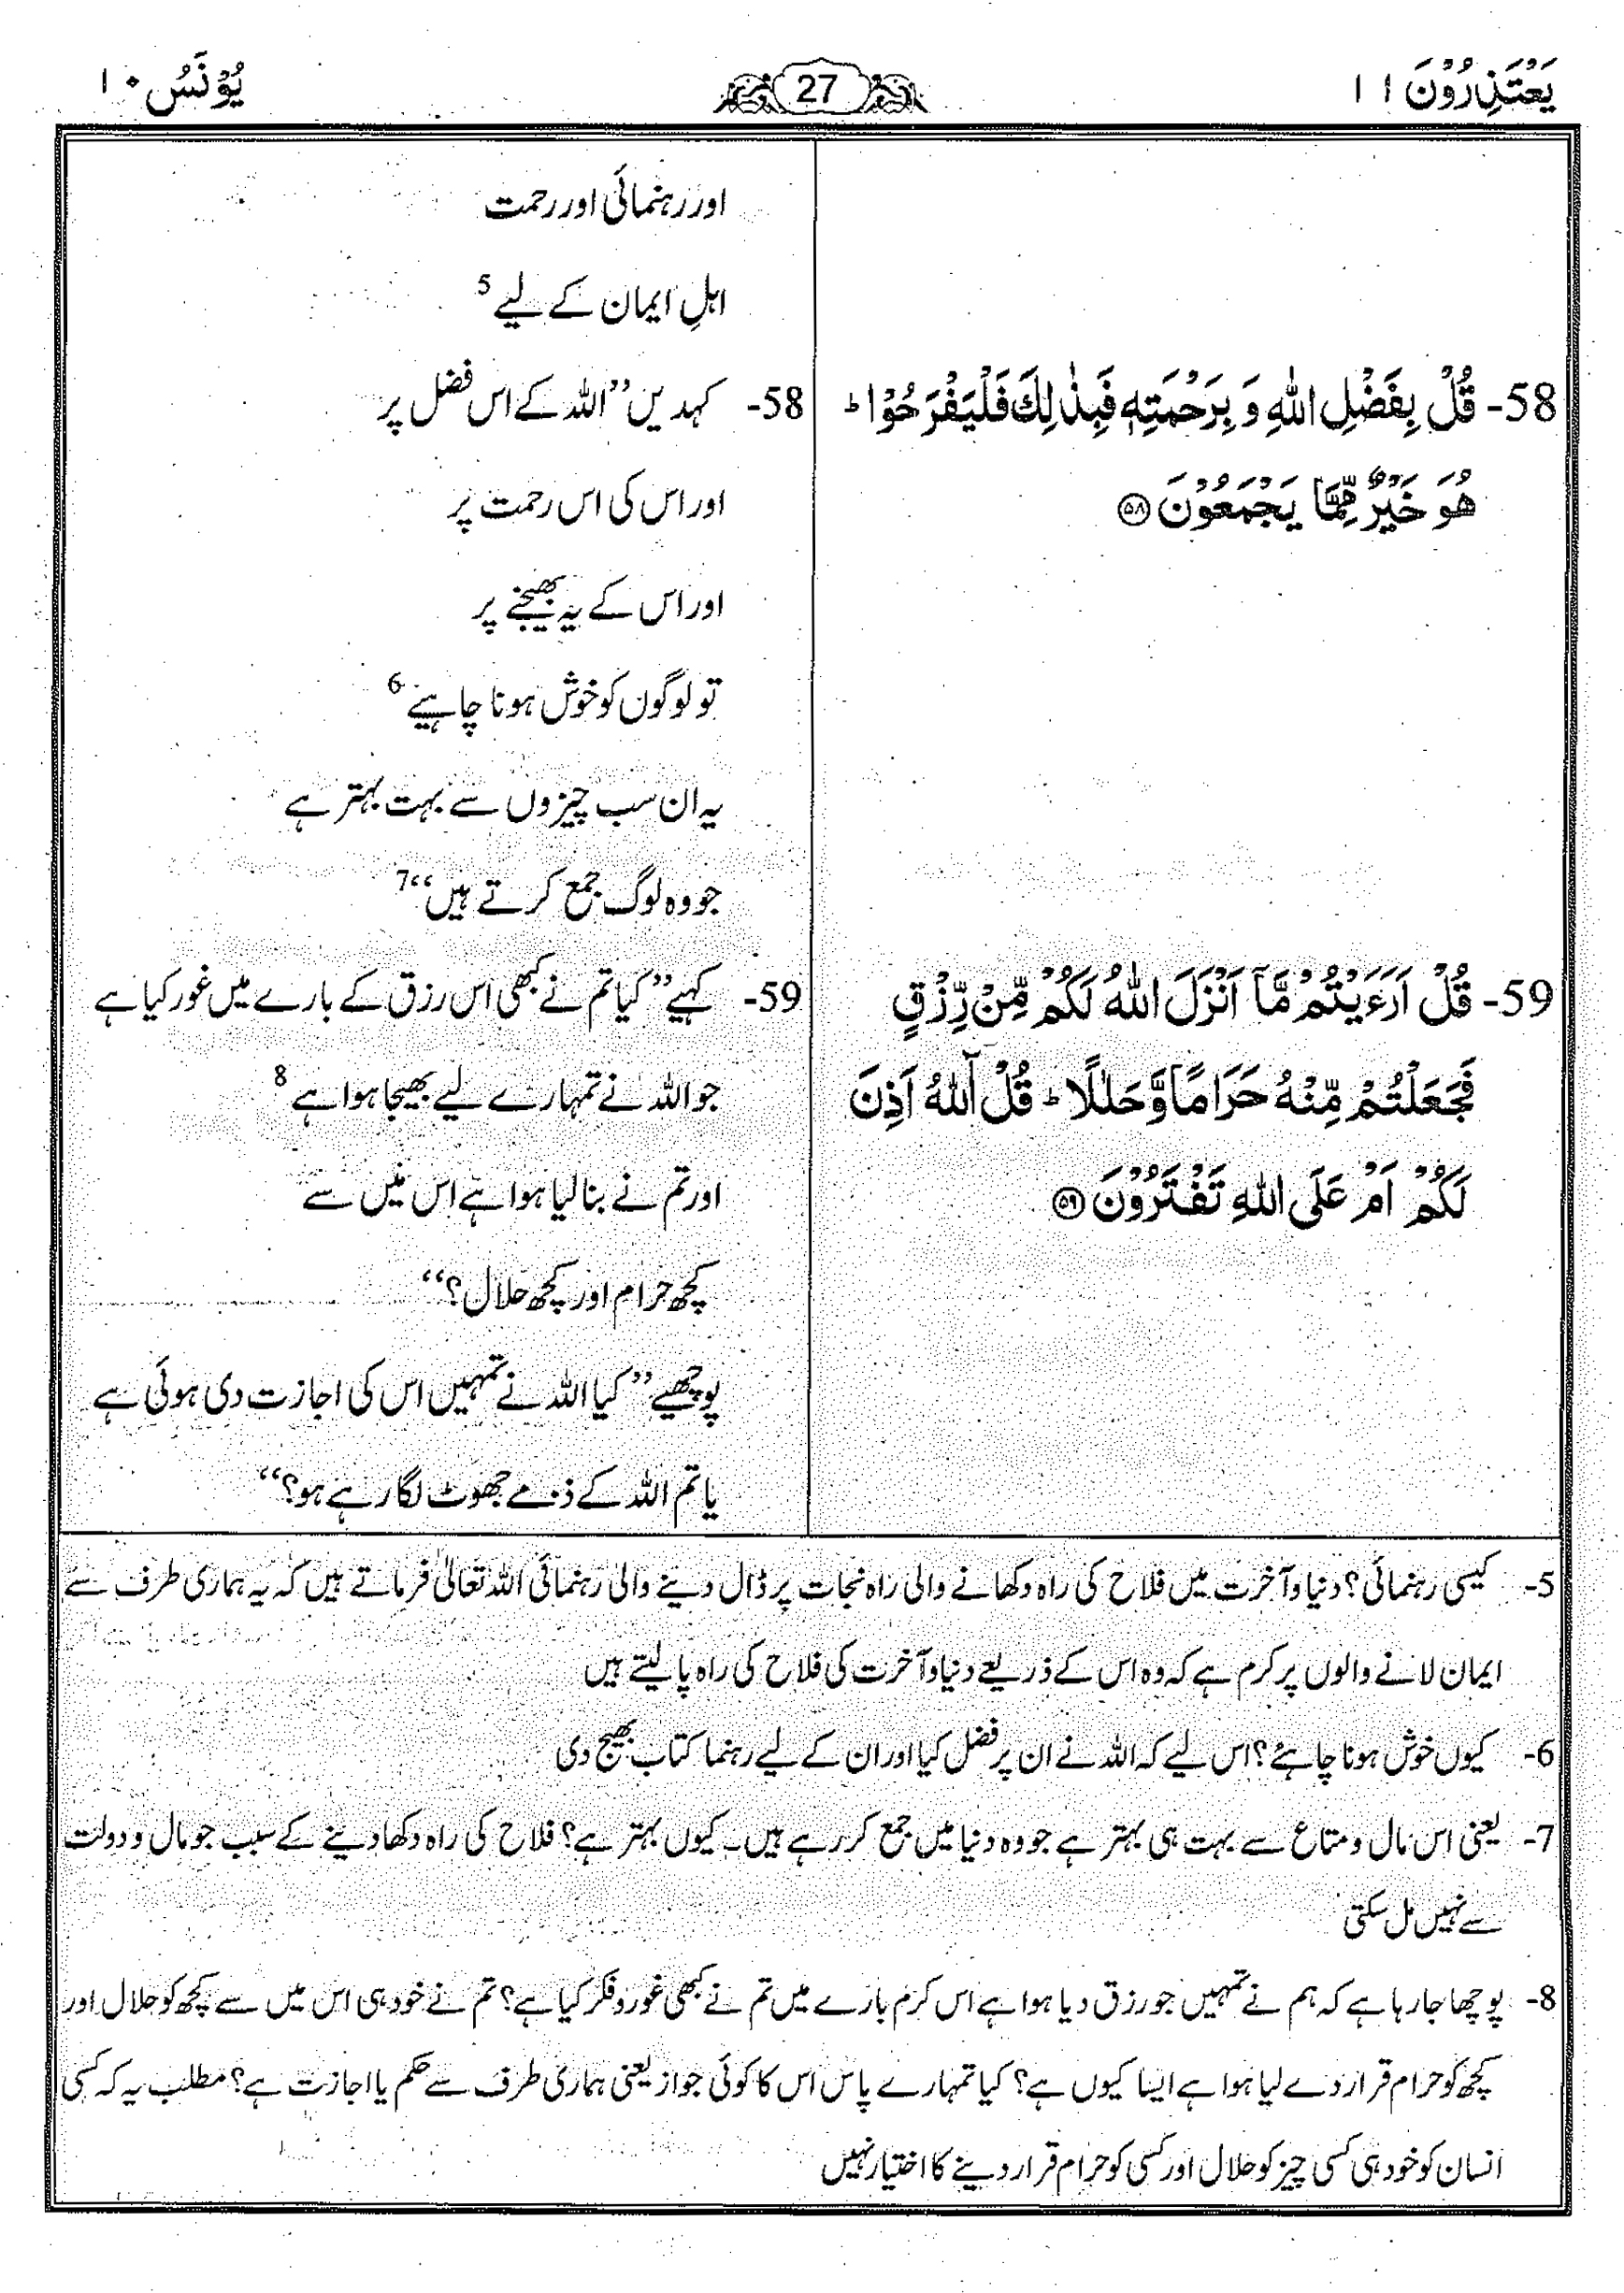 یَعْتَذِرُوْنَ ۱۱
27
یُوْنَسُ ۱۰
58- قُلْ بِفَضْلِ اللّٰهِ وَ بِرَحْمَتِهٖ فَبِذٰلِكَ فَلْیَفْرَحُوْا ؕ
هُوَ خَیْرٌ مِّمَّا یَجْمَعُوْنَ ﴿۵۸﴾
59- قُلْ اَرَءَیْتُمْ مَّاۤ اَنْزَلَ اللّٰهُ لَكُمْ مِّنْ رِّزْقٍ
فَجَعَلْتُمْ مِّنْهُ حَرَامًا وَّ حَلٰلًا ؕ قُلْ آٰللّٰهُ اَذِنَ
لَكُمْ اَمْ عَلَی اللّٰهِ تَفْتَرُوْنَ ﴿۵۹﴾
اور رہنمائی اور رحمت
اہلِ ایمان کے لیے 5
58- کہدیں ’’اللہ کے اس فضل پر
اور اس کی اس رحمت پر
اور اس کے یہ بھیجنے پر
تو لوگوں کو خوش ہونا چاہیے 6
یہ ان سب چیزوں سے بہت بہتر ہے
جو وہ لوگ جمع کرتے ہیں‘‘ 7
59- کہیے ’’کیا تم نے کبھی اس رزق کے بارے میں غور کیا ہے
جو اللہ نے تمہارے لیے بھیجا ہوا ہے 8
اور تم نے بنا لیا ہوا ہے اس میں سے
کچھ حرام اور کچھ حلال؟‘‘
پوچھیے ’’کیا اللہ نے تمہیں اس کی اجازت دی ہوئی ہے
یا تم اللہ کے ذمے جھوٹ لگا رہے ہو؟‘‘
5- کیسی رہنمائی؟ دنیا و آخرت میں فلاح کی راہ دکھانے والی راہ نجات پر ڈال دینے والی رہنمائی اللہ تعالیٰ فرماتے ہیں کہ یہ ہماری طرف سے
ایمان لانے والوں پر کرم ہے کہ وہ اس کے ذریعے دنیا و آخرت کی فلاح کی راہ پا لیتے ہیں
6- کیوں خوش ہونا چاہئے؟ اس لیے کہ اللہ نے ان پر فضل کیا اور ان کے لیے رہنما کتاب بھیج دی
7- یعنی اس مال و متاع سے بہت ہی بہتر ہے جو وہ دنیا میں جمع کر رہے ہیں۔ کیوں بہتر ہے؟ فلاح کی راہ دکھا دینے کے سبب جو مال و دولت
سے نہیں مل سکتی
8- پوچھا جا رہا ہے کہ ہم نے تمہیں جو رزق دیا ہوا ہے اس کرم بارے میں تم نے کبھی غور و فکر کیا ہے؟ تم نے خود ہی اس میں سے کچھ کو حلال اور
کچھ کو حرام قرار دے لیا ہوا ہے ایسا کیوں ہے؟ کیا تمہارے پاس اس کا کوئی جواز یعنی ہماری طرف سے حکم یا اجازت ہے؟ مطلب یہ کہ کسی
انسان کو خود ہی کسی چیز کو حلال اور کسی کو حرام قرار دینے کا اختیار نہیں